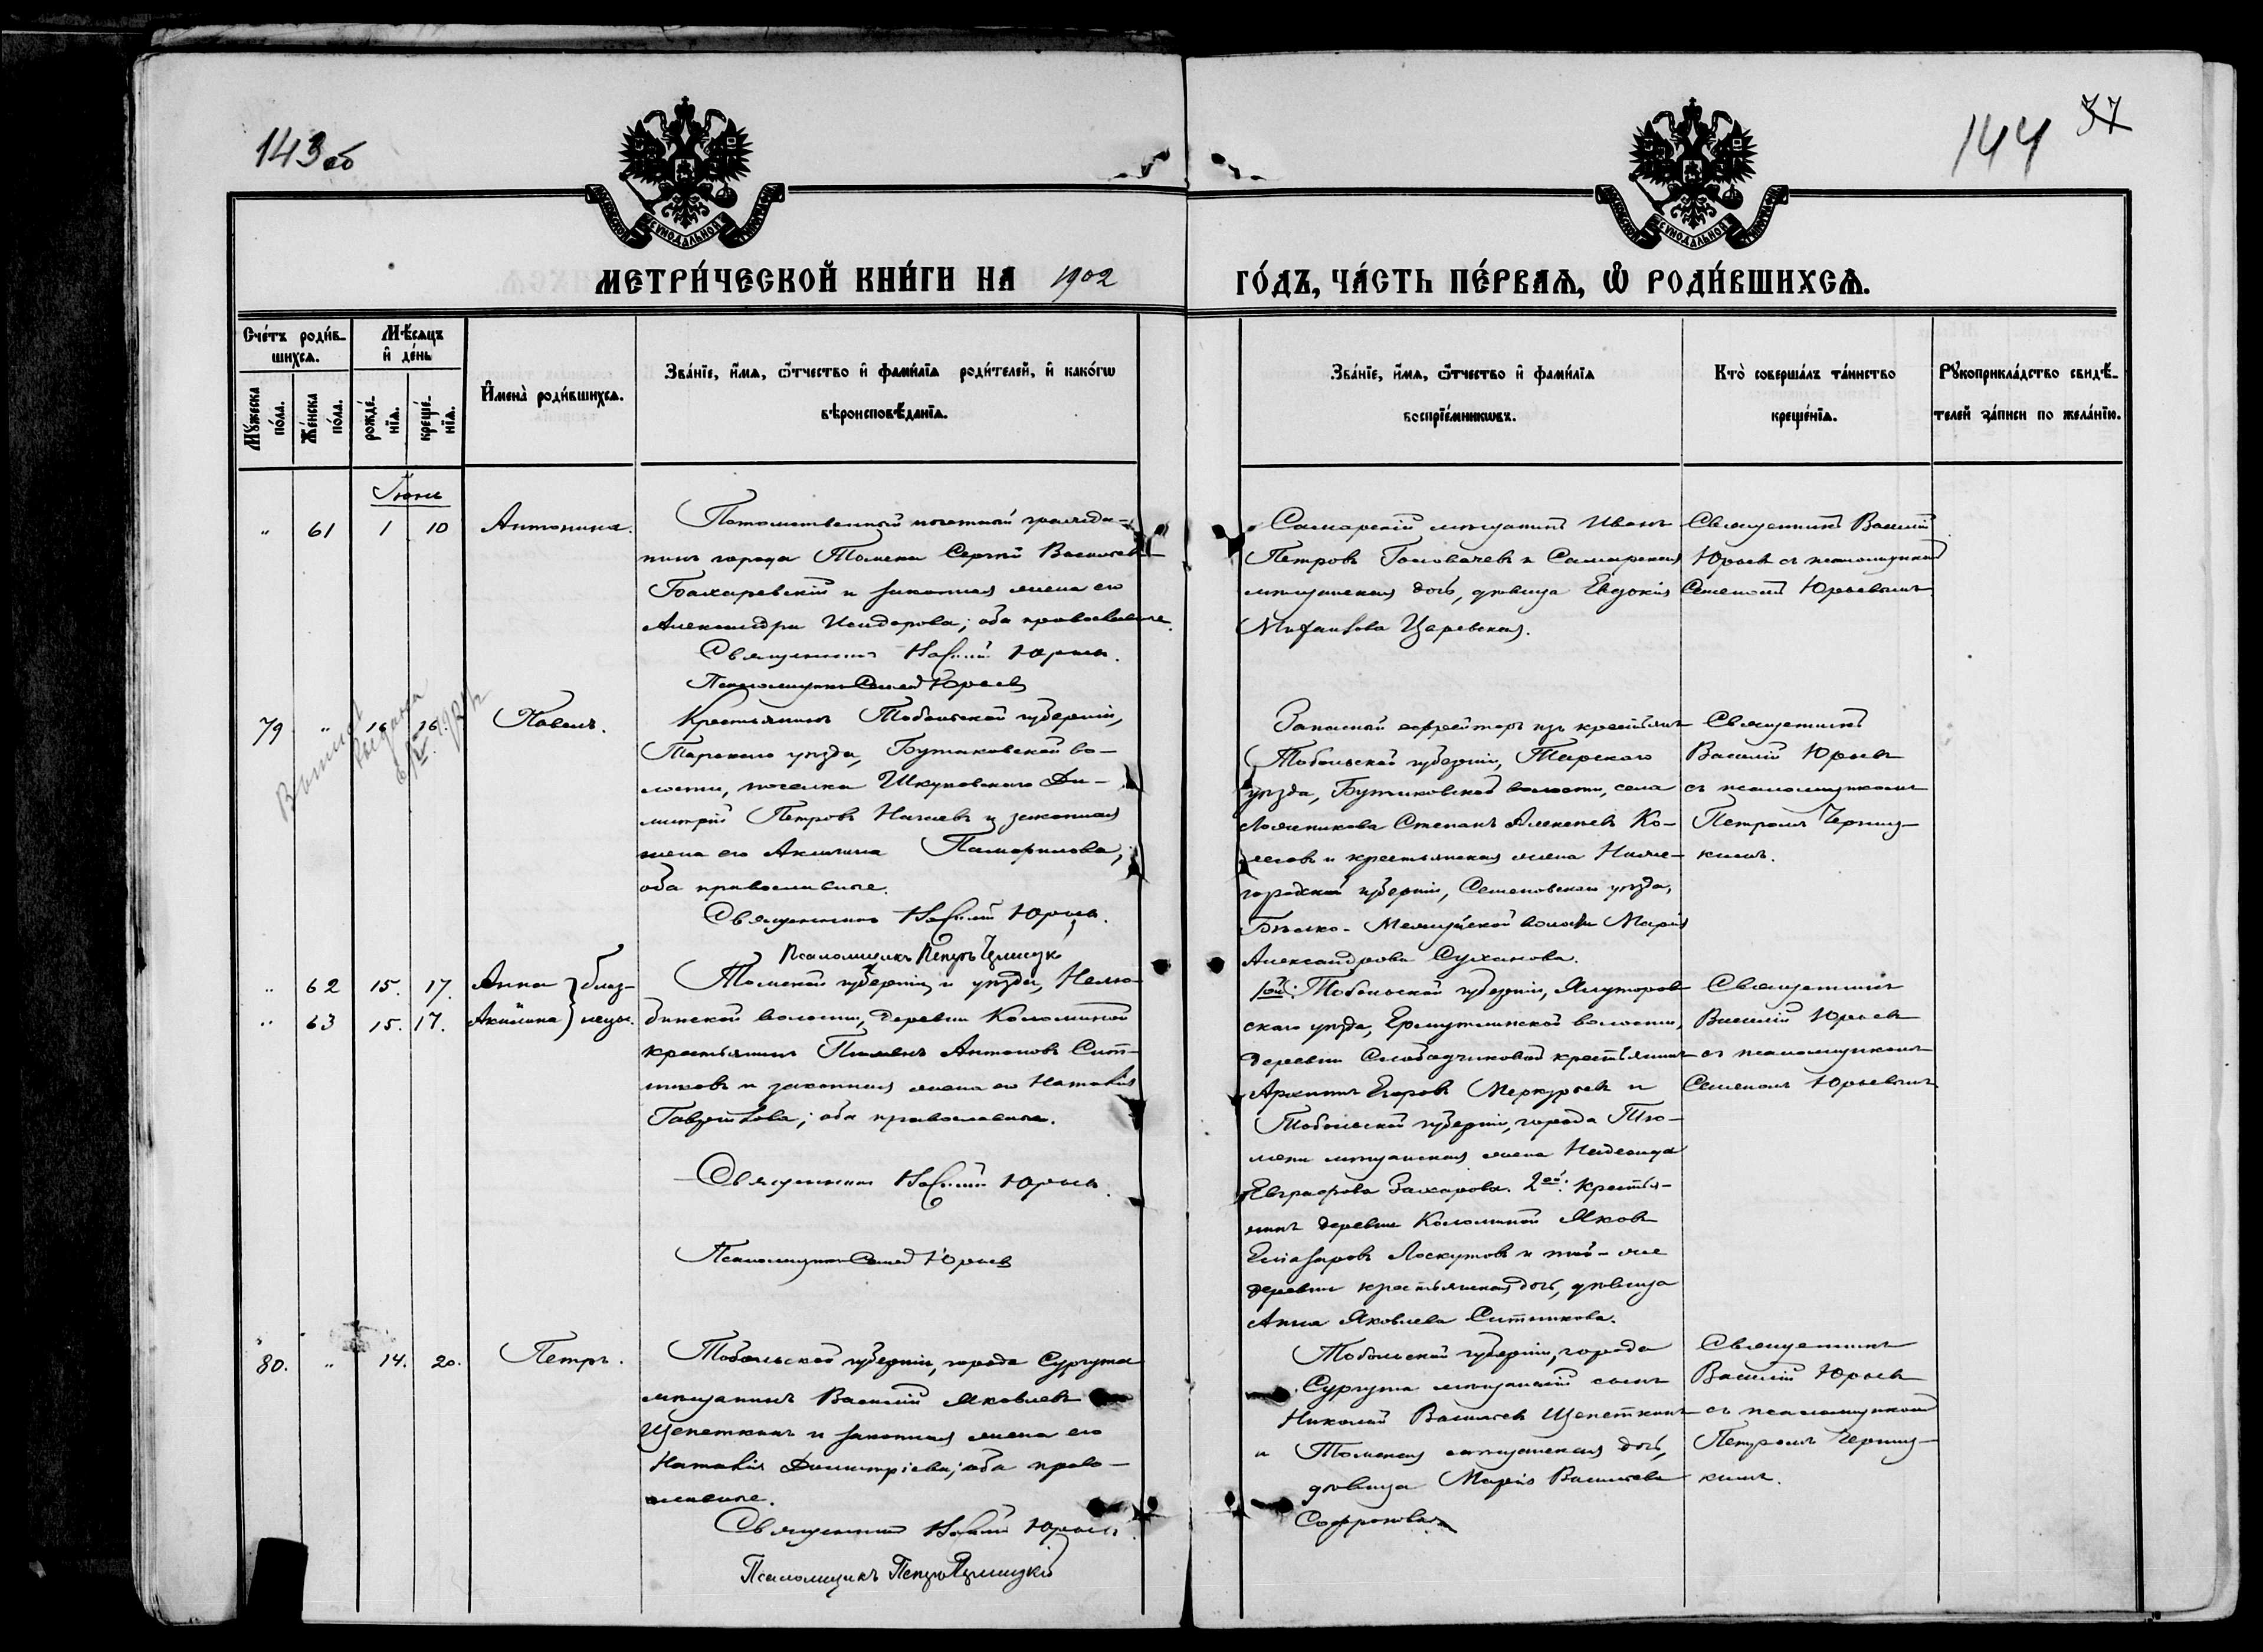 143 об
144 37
МЕТРИ́ЧЕСКОЙ КНИ́ГИ НА 1902 ГО́ДЪ, ЧА́СТЬ ПЕ́РВАѦ, Ѡ РОДИ́ВШИХСѦ.
Сче́тъ роди́в-
шихсѧ.
Мꙋжеска по́ла.
Же́нска по́ла.
Мѣ́сѧцъ
и де́нь
рожде́-
нїѧ.
креще́-
нїѧ.
Имена̀ роди́вшихсѧ.
Зва́нїе, и́мѧ, ѻ́тчество и фами́лїѧ роди́телей, и како́гѡ
вѣроисповѣ́данїѧ.
Зва́нїе, и́мѧ, ѻ́тчество и фами́лїѧ
воспрїе́мникѡвъ.
Кто̀ соверша́лъ та́инство
креще́нїѧ.
Рꙋкоприкла́дство свидѣ́-
телей за́писи по жела́нїю.
Іюнь
" 61 1 10 Антонина.
Потомственный почетный гражда-
нинъ города Томска Сергій Васильевъ
Бахаревскій и законная жена его
Александра Исидорова; оба православные.
Священникъ Василій Юрьевъ.
Псаломщикъ Семенъ Юрьевъ
Самарскій мѣщанинъ Иванъ
Петровъ Головачевъ и Самарская
мѣщанская дочь, дѣвица Евдокія
Михайлова Царевская.
Священникъ Василій
Юрьевъ съ псаломщикомъ
Семеномъ Юрьевымъ
79 " 16 16. Павелъ.
Выписка
выдана
Крестьянинъ Тобольской губерніи,
Тарскаго уѣзда, Бутаковской во-
лости, поселка Шкуновскаго Ди-
митрій Петровъ Ничаевъ и законная
жена его Акилина Памфилова;
оба православные.
Священникъ Василій Юрьевъ.
Псаломщикъ Петръ
Запасной ефрейторъ изъ крестьянъ
Тобольской губерніи, Тарскаго
уѣзда, Бутаковской волости, села
Ложникова Степанъ Алексѣевъ Ко-
лесовъ и крестьянская жена Ниже-
городской губерніи, Семеновскаго уѣзда,
волости Марія
Александрова Суханова.
Священникъ
Василій Юрьевъ
съ псаломщикомъ
Петромъ
" 62 15. 17. Анна } близ-
" 63 15. 17. Акилина } нецы.
Томской губерніи и уѣзда, Нелю-
бинской волости, деревни Коломиной
крестьянинъ Пименъ Антоновъ Сит-
никовъ и законная жена его Наталія
Гаврилова; оба православные.
Священникъ Василій Юрьевъ.
Псаломщикъ Семенъ Юрьевъ
1ой: Тобольской губерніи, Ялуторов-
скаго уѣзда, Ермутлинской волости,
деревни Слободчиковой крестьянинъ
Архипъ Егоровъ Меркурьевъ и
Тобольской губерніи, города Тю-
мени мѣщанская жена Надежда
Евграфова Захарова. 2ой: крестья-
нинъ деревни Коломиной Яковъ
Елиазаровъ Лоскутовъ и той-же
деревни крестьянская дочь, дѣвица
Анна Яковлева Ситникова.
Священникъ
Василій Юрьевъ
съ псаломщикомъ
Семеномъ Юрьевымъ
80. " 14. 20. Петръ.
Тобольской губерніи, города Сургута
мѣщанинъ Василій Яковлевъ
Щепеткинъ и законная жена его
Наталія Димитріева; оба право-
славные.
Священникъ Василій Юрьевъ.
Псаломщикъ Петръ
Тобольской губерніи, города
Сургута мѣщанскій сынъ
Николай Васильевъ Щепеткинъ
и Томская мѣщанская дочь,
дѣвица Марія Васильева
Софронова
Священникъ
Василій Юрьевъ
съ псаломщикомъ
Петромъ